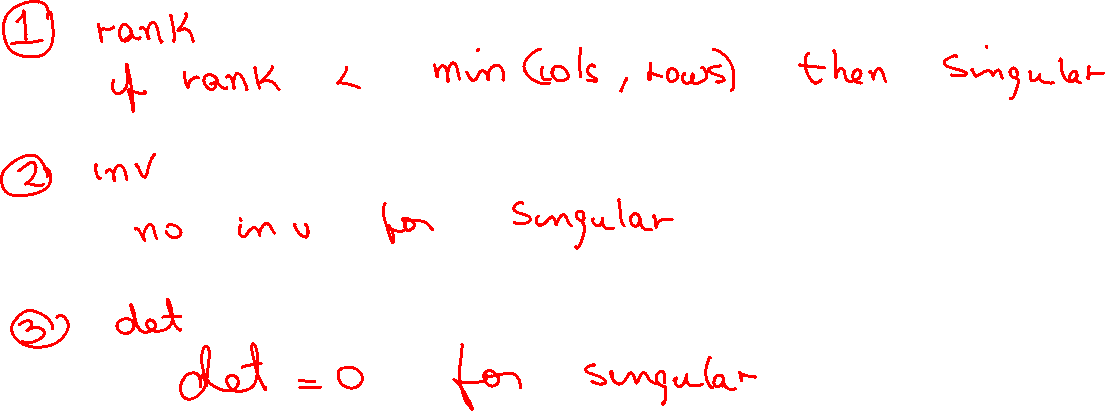 ① rank
if rank < min (cols, rows) then singular
② inv
no inv for singular
③ det
det = 0 for singular